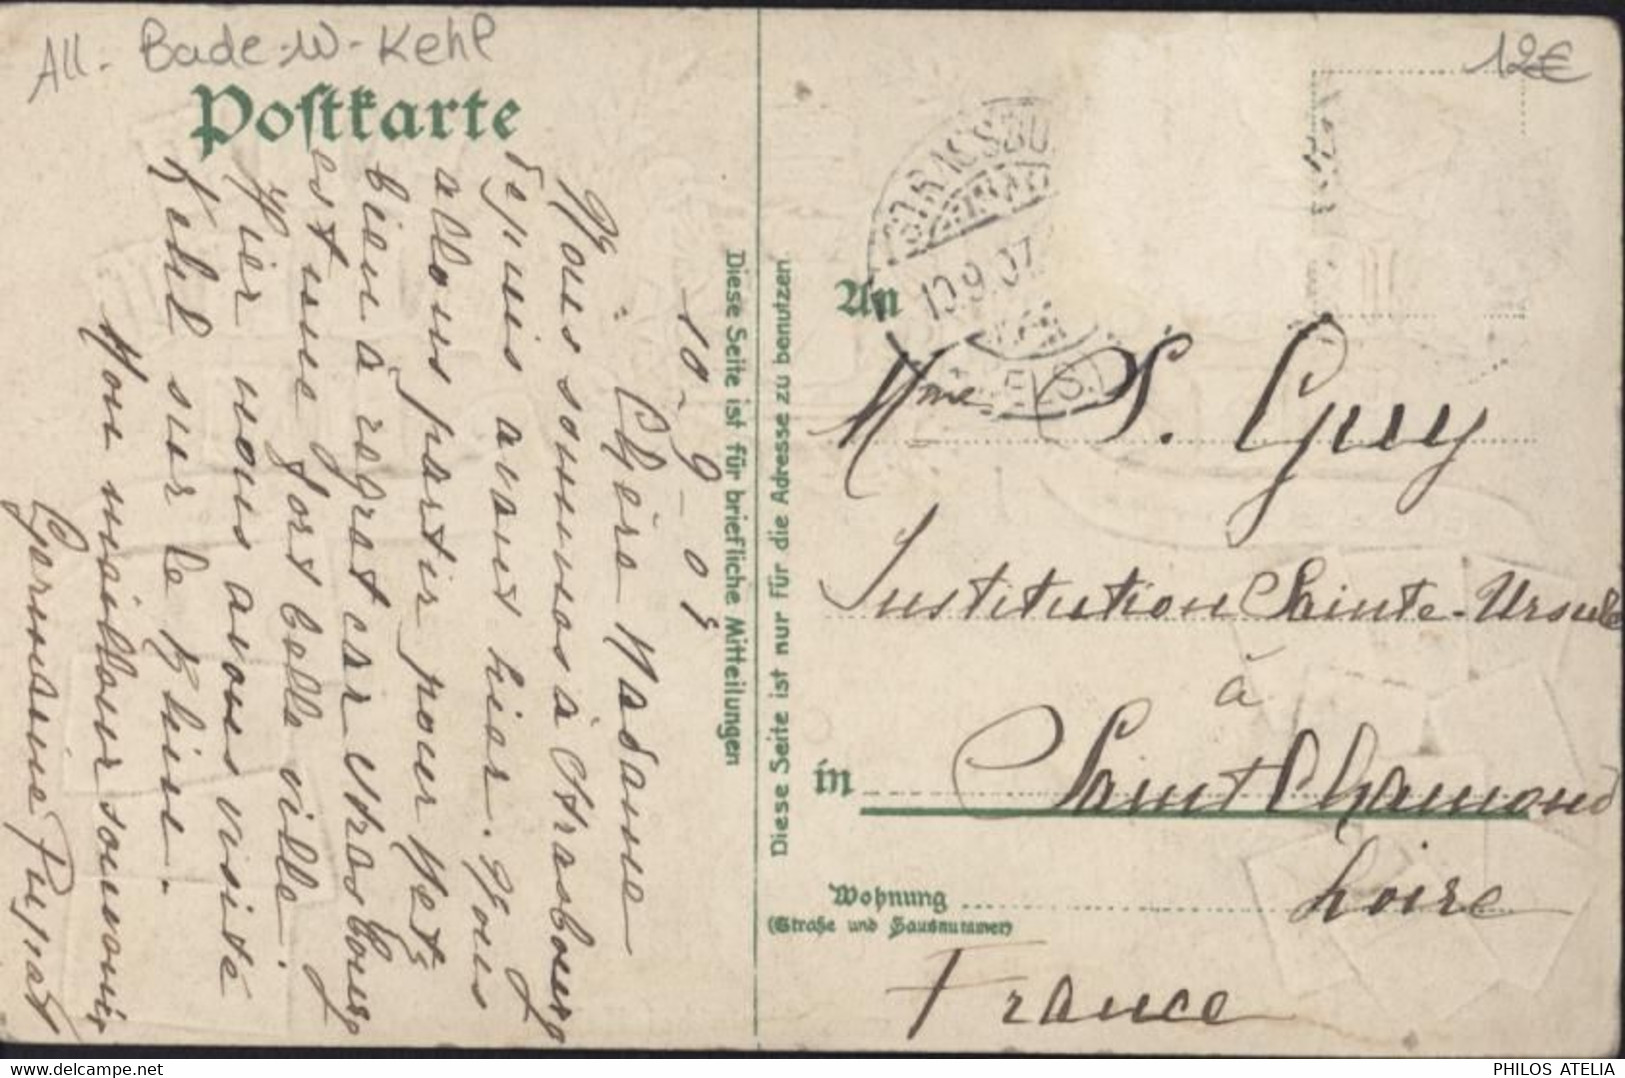 All - Bade-W-Kehl
12€
Postkarte
STRASSBU
10.9.07
(ELS.)
10-9-07
Chère Madame
Nous sommes à Strasbourg
depuis avant hier. Nous
allons partir pour Metz
bien à regret car Strasbourg
est une fort belle ville.
Hier nous avons visité
Kehl sur le Rhin.
Mon meilleur souvenir
Germaine
Diese Seite ist für briefliche Mitteilungen
Diese Seite ist nur für die Adresse zu benutzen
An
Mme S. Guy
Institution Sainte-Ursule
à
in Saint Chamond
Wohnung Loire
(Straße und Hausnummer)
France
delcampe.net
PHILOS ATELIA